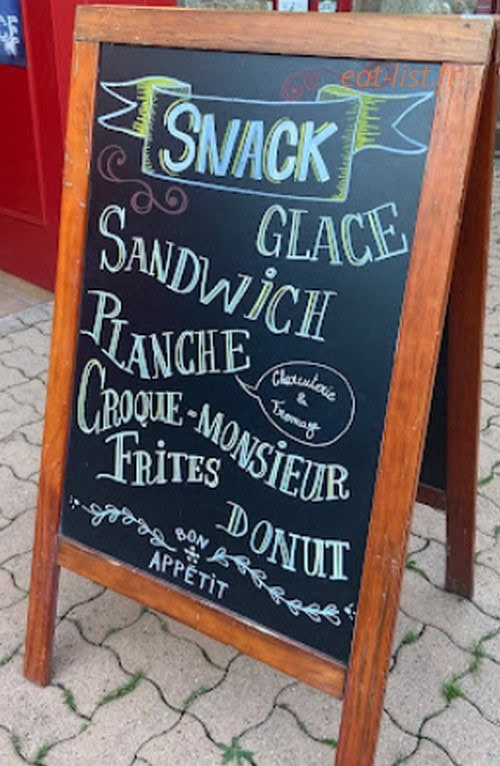 eat-list.fr
SNACK
GLACE
SANDWiCH
PLANCHE
Charcuterie
&
Fromage
CROQUE-MONSiEUR
FRiTES
DONUT
BON
APPÉTiT